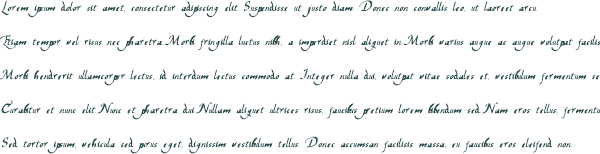 Lorem ipsum dolor sit amet, consectetur adipiscing elit. Suspendisse ut justo diam. Donec non convallis leo, ut laoreet arcu.
Etiam tempor vel risus nec pharetra. Morbi fringilla luctus nibh, a imperdiet nisl aliquet in. Morbi varius augue ac augue volutpat facilis
Morbi hendrerit ullamcorper lectus, id interdum lectus commodo at. Integer nulla dui, volutpat vitae sodales et, vestibulum fermentum se
Curabitur et nunc elit. Nunc et pharetra dui. Nullam aliquet ultrices risus, faucibus pretium lorem bibendum sed. Nam eros tellus, fermentu
Sed tortor ipsum, vehicula sed purus eget, dignissim vestibulum tellus. Donec accumsan facilisis massa, eu faucibus eros eleifend non.